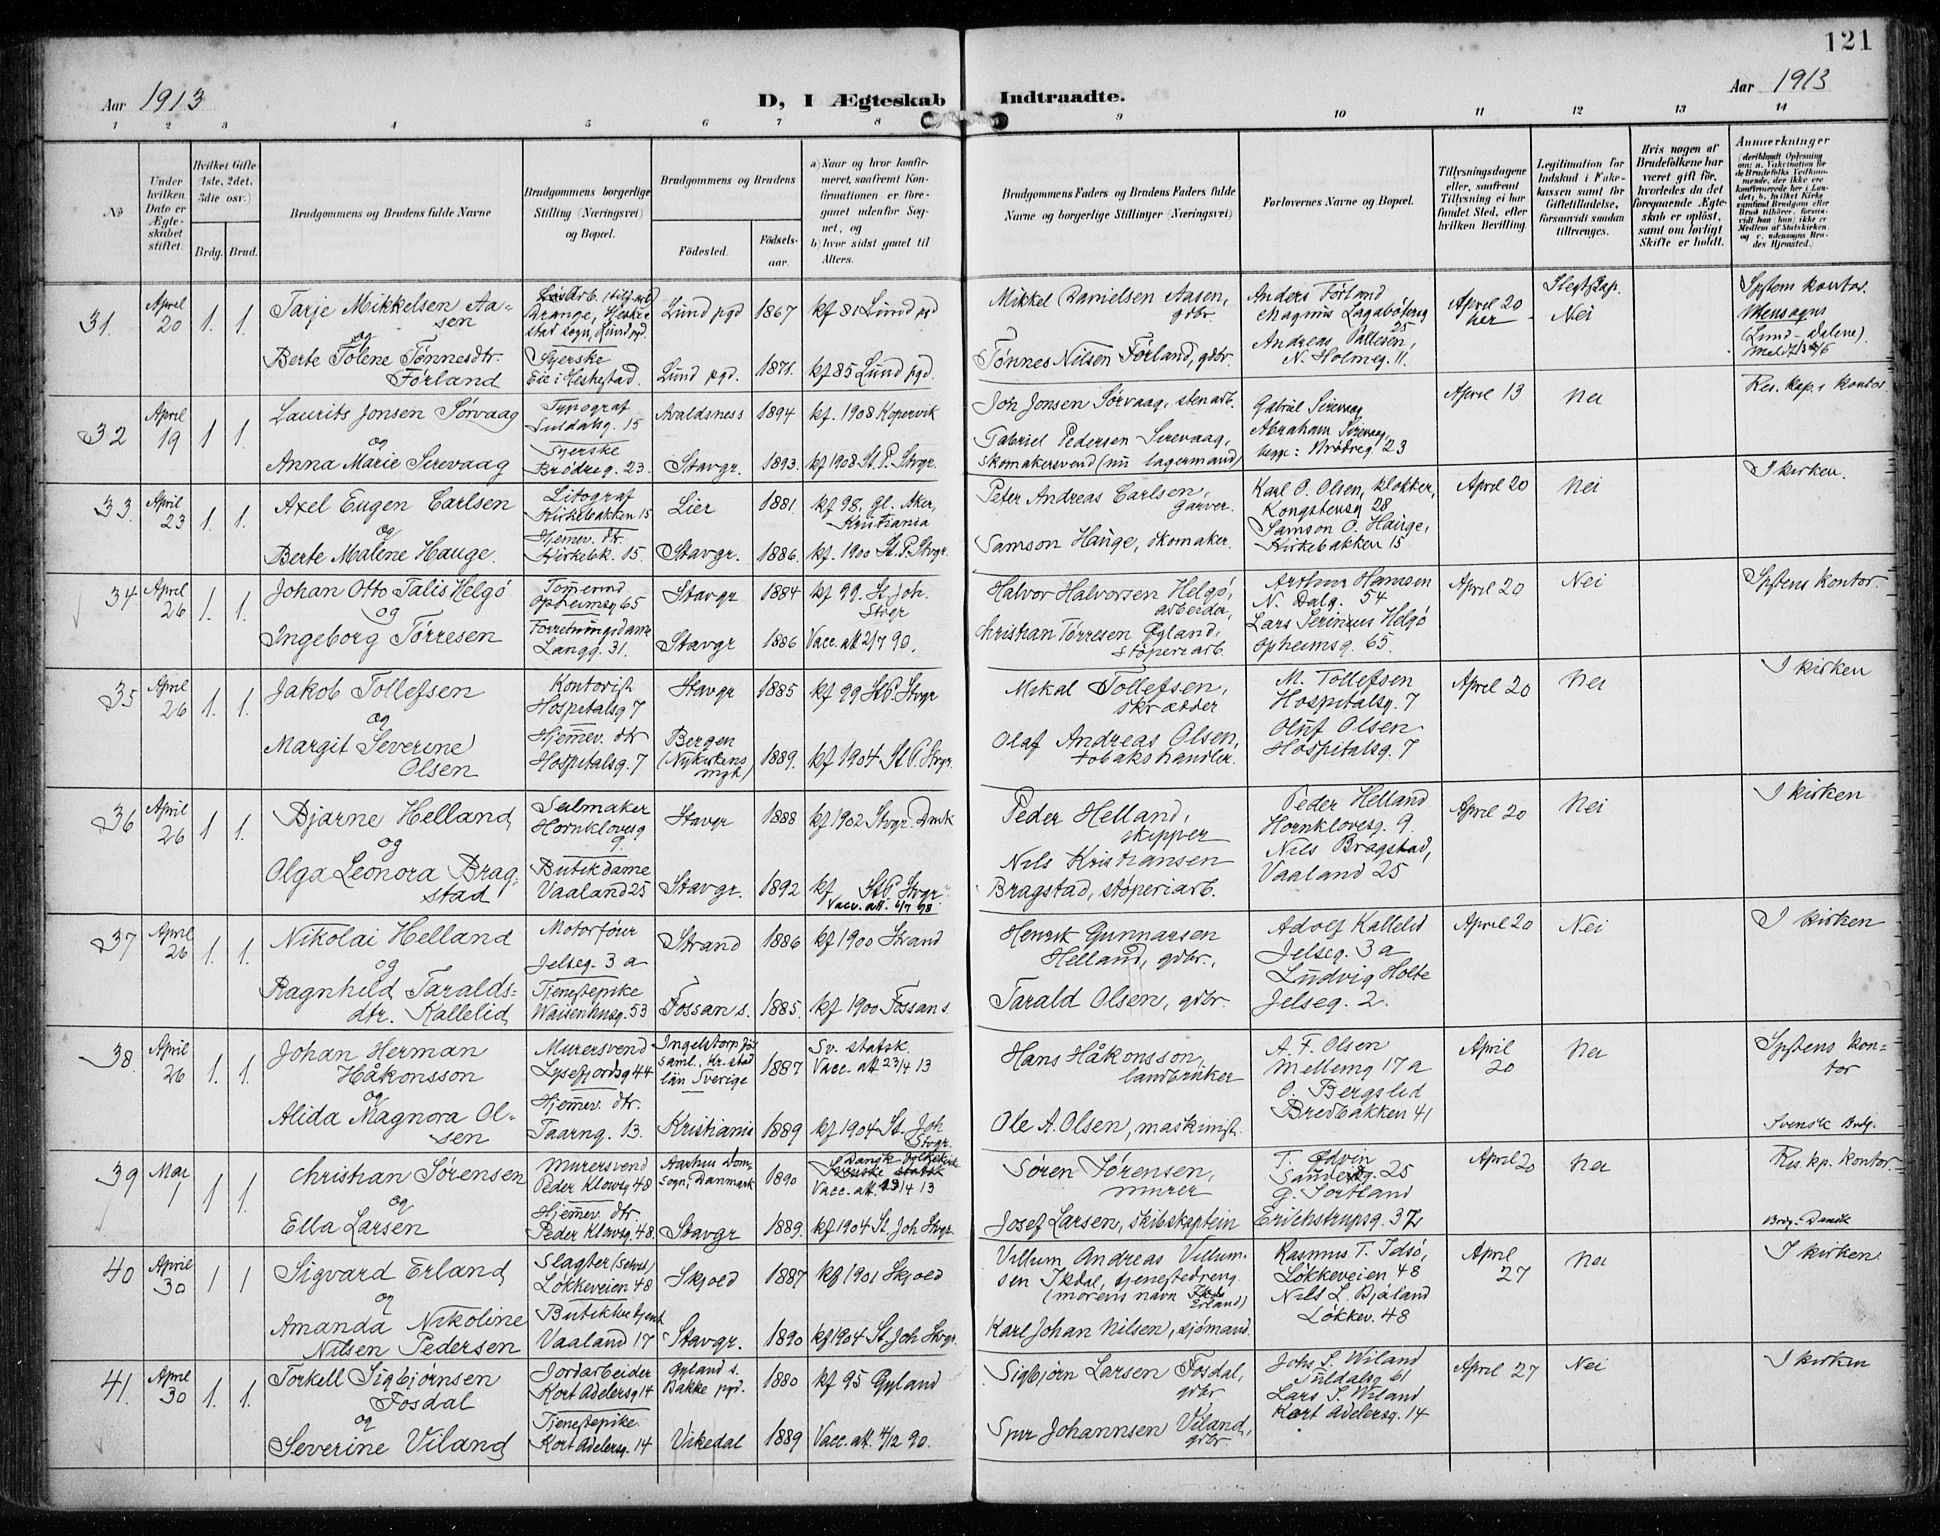 121
Aar 1913
D, I Ægteskab Indtraadte.
Aar 1913
1 2 3 4 5 6 7 8 9 10 11 12 13 14
No
Under hvilken Dato er Ægteskabet stiftet.
Hvilket Gifte (1ste, 2det, 3die osv.)
Brdg. Brud.
Brudgommens og Brudens fulde Navne
Brudgommens borgerlige Stilling (Næringsvei) og Bopæl.
Brudgommens og Brudens
Fødested.
Fødselsaar.
a) Naar og hvor konfirmeret, saafremt Konfirmationen er foregaaet udenfor Sognet, og
b) hvor sidst gaaet til Alters.
Brudgommens Faders og Brudens Faders fulde Navne og borgerlige Stillinger (Næringsvei)
Forlovernes Navne og Bopæl.
Tillysningsdagene eller, saafremt Tillysning ei har fundet Sted, efter hvilken Bevilling.
Legitimation for Indskud i Fakekassen samt for Giftetilladelse, forsaavidt saadan tiltrænges.
Hvis nogen af Brudefolkene har været gift før, hvorledes da det foregaaende Ægteskab er opløst, samt om lovligt Skifte er holdt.
Anmærkninger
31. April 20 1. 1.
Tarje Mikkelsen Aasen
og
Berte Tolene Tønnesdtr. Førland
stad sogn, Lund pgd.
Syerske
Eie i Heskestad.
Lund pgd 1867 kf 81 Lund pgd
Lund pgd. 1871. kf 85 Lund pgd.
Mikkel Danielsen Aasen, gdbr.
Tønnes Nilsen Førland, gdbr
Anders Førland
Magnus Lagabøtersg 25
Andreas Pallesen,
N. Holmeg. 11.
April 20 her
Nei
Spstens kontor.
(Lund - Dalene).
32 April 19 1 1.
Laurits Jonsen Sørvaag
og
Anna Marie Serevaag
Typograf
Suldalsg. 15
Syerske
Brødreg. 23.
Avaldsness 1894 kf. 1908 Kopervik
Stavgr. 1893. kf 1908 St. P. Stvgr.
Joh Jonsen Sørvaag, stenarb.
Gabriel Pedersen Serevaag,
skomakersvend (nu lagermand)
Gabriel Serevaag
Abraham Serevaag
begge: Brødreg 23
April 13 Nei
Res. kap.s kontor
33. April 23 1. 1.
Axel Eugen Carlsen
og
Berte Malene Hauge.
Litograf
Kirkebakken 15
Hjemev. dtr
Kirkebk. 15.
Lier 1881. kf 98. gl. Aker, Kristiania
Stavgr. 1886. kf. 1900 St. P. Stvgr.
Peter Andreas Carlsen, garver.
Samson Hauge, skomaker.
Karl O. Olsen, klokker,
Kongstensg 28
Samson O. Hauge,
Kirkebakken 15
April 20 Nei
I kirken.
34 April 26 1. 1.
Johan Otto Talis Helgø
og
Ingeborg Tørresen
Tømmermd
Opheimsg 65
Forretningsdame
Langg. 31.
Stavgr 1884 kf 99. St. Joh. Stvgr
Stavgr 1886 Vacc. att 2/7 90.
Halvor Halvorsen Helgø, arbeider,
Christian Tørresen Øgland, støperiarb.
Arthur Hansen
N. Dalg. 54
Lars Serinius Helgø
Opheimsg. 65.
April 20 Nei
Spstens kontor
35 April 26 1. 1.
Jakob Tollefsen
og
Margit Severine Olsen
Kontorist
Hospitalsg 7
Hjemmev. dtr
Hospitalsg. 7
Stavgr 1885 kf 99 St. P. Stvgr
Bergen (Nykirkens mgh) 1889. kf 1904 St. P. Stvgr.
Mikal Tollefsen, skrædder
Olaf Andreas Olsen, tobakshandler.
M. Tollefsen
Hospitalsg. 7
Oluf Olsen
Hospitalsg. 7
April 20 Nei
I kirken
36 April 26 1 1.
Bjarne Helland
og
Olga Leonora Bragstad
Seilmaker
Hornklovesg 9.
Butikdame
Vaaland 25
Stavgr 1888 kf 1902 Stvgr. Dmk
Stavgr. 1892 kf St. P. Stvgr.
Vacc. att. 6/7 98
Peder Helland, skipper
Nils Kristiansen
Bragstad, støperiarb.
Peder Helland
Hornklovesg. 9.
Nils Bragstad,
Vaaland 25
April 20 Nei
I kirken
37 April 26 1. 1.
Nikolai Helland
og
Ragnhild Taraldsdtr. Kallelid
Motorfører
Jelseg. 3 a
Tjenestepike
Waisenhusg. 53
Strand 1886 kf 1900 Strand
Fossan s. 1885. kf 1900 Fossan s
Henrik Gunnarsen
Helland, gdbr.,
Tarald Olsen, gdbr.
Adolf Kallelid
Jelseg. 3 a
Ludvig Holte
Jelseg. 2.
April 20 Nei
I kirken
38. April 26 1. 1.
Johan Herman Håkonsson
og
Alida Magnora Olsen
Murersvend
Lysefjordsg 44
Hjemmev. dtr.
Taarng. 13.
Ingelstorp før saml. Kr. stad län Sverige
1887 Sv. statsk Vacc. att 23/4 13
Kristiania 1889 kf 1904 St. Joh Stvgr.
Hans Håkonsson, landbruker
Ole A. Olsen, maskinist.
A. F. Olsen
Mellemg 17 a
O. Bergslid
Bredbakken 41
April 20 Nei
Spstens kontor
Svensk Brdg.
39 Mai 1 1 1
Christian Sørensen
og
Ella Larsen
Murersvend
Peder Klowsg 48
Hjemmev. dtr
Peder Klowsg. 48.
Aarhus Domsogn, Danmark 1890
Dansk folkekirke
Svenske statsk
Vacc. att. 13/4 13
Stavgr 1889. kf 1904 St. Joh Stvgr.
Søren Sørensen, murer
Josef Larsen, skibskaptein
T. Edvin
Sandeidg. 25
G. Sortland
Erichstrupsg. 37
April 20 Nei
Res. kp. kontor
Brdg. Dansk
40 April 30 1 1
Sigvard Erland
og
Amanda Nikoline
Nilsen Pedersen
Slagter (selvst)
Løkkeveien 48
Vaaland 17
Skjold 1887 kf 1901 Skjold
Stavgr. 1890 kf 1904 St. Joh Stvgr.
Villum Andreas Villumsen Ikdal, tjenestedreng
(morens navn Erland)
Karl Johan Nilsen, sjømand.
Rasmus T. Idsø,
Løkkeveien 48
Nils L. Bjåland
Løkkev. 48
April 27 Nei
I kirken.
41. April 30 1. 1.
Torkell Sigbjørnsen Fosdal
og
Severine Viland
Jordarbeider
Kort Adelersg 14
Tjenestepike.
Kort Adelersg. 14
Gyland s. Bakke pgd. 1880 kf 95 Gyland
Vikedal 1889 Vacc. att. 4/12 90.
Sigbjørn Larsen Fosdal, gdbr
Johannsen Viland, gdbr
Johs S. Wiland
Suldalsg 61
Lars S. Wiland
Kort Adelersg. 14
April 27 Nei
I kirken